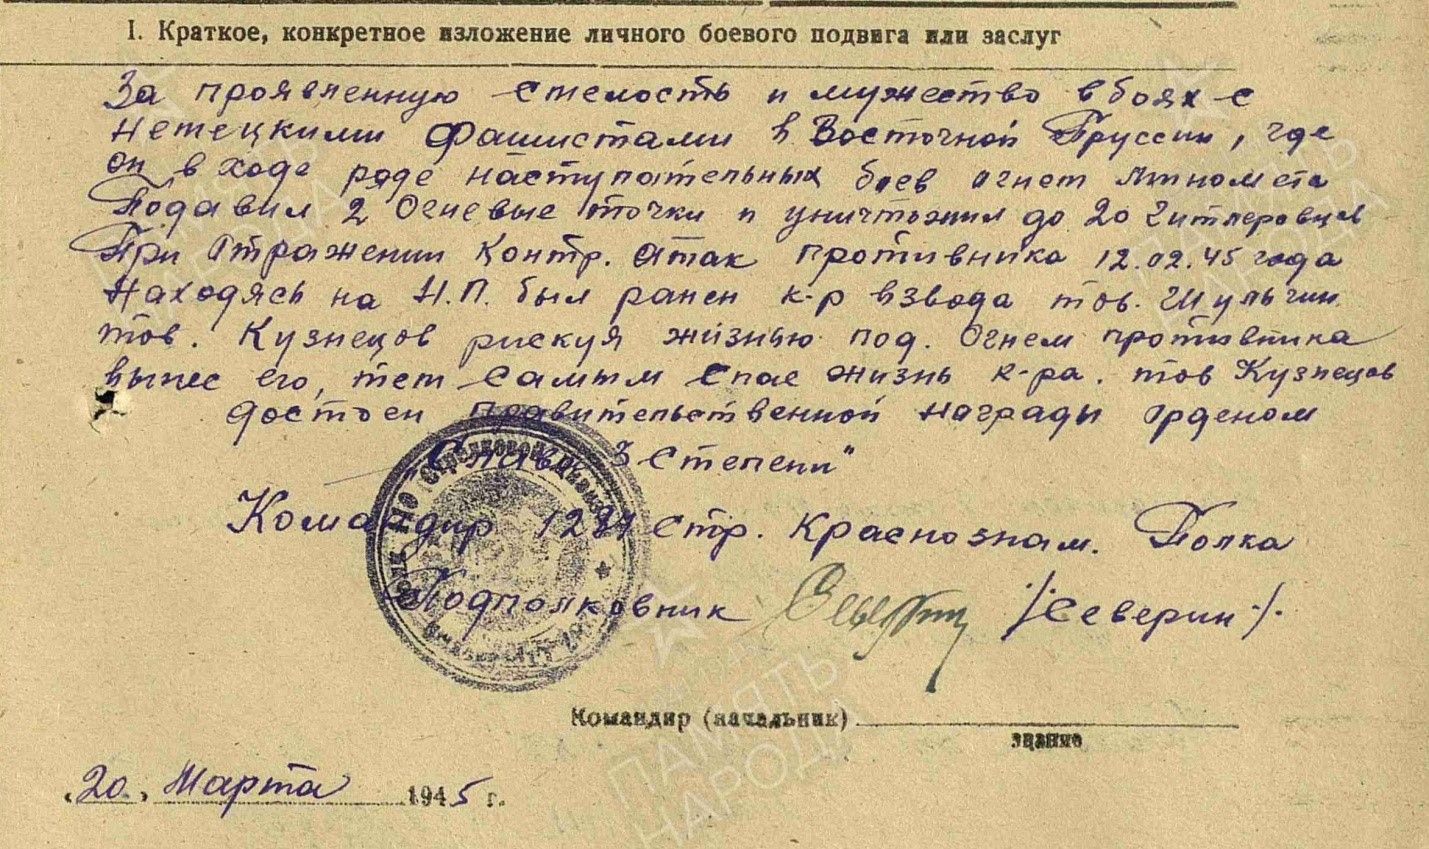 I. Краткое, конкретное изложение личного боевого подвига или заслуг
За проявленную смелость и мужество в боях с
немецкими фашистами в Восточной Пруссии, где
он в ходе ряде наступательных боев огнем миномета
Подавил 2 Огневые точки и уничтожил до 20 Гитлеровцев
При Отражении Контр. Атак противника 12.02.45 года
Находясь на Н.П. был ранен к-р взвода тов. Шульгин
тов. Кузнецов рискуя жизнью под. Огнем противника
вынес его, тем самым спас жизнь к-ра. тов Кузнецов
достоен правительственной награды орденом
"Слава 3 Степени"
Командир Стр. Краснознам. Полка
Подполковник /Северин/.
Командир (начальник)
звание
"20" Марта 1945 г.
ПАМЯТЬ
НАРОДА